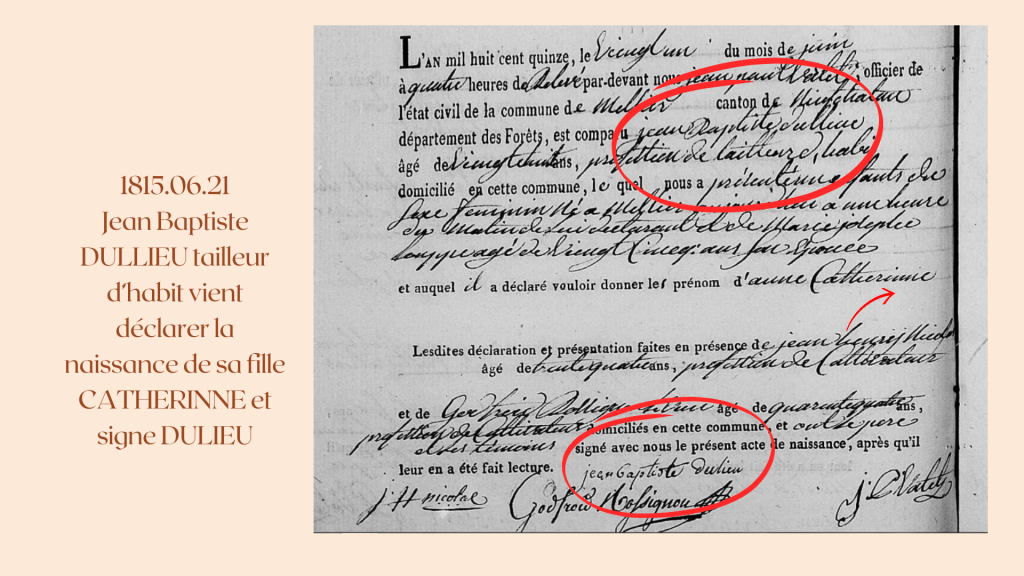 1815.06.21
Jean Baptiste
DULLIEU tailleur
d'habit vient
déclarer la
naissance de sa fille
CATHERINNE et
signe DULIEU
L'AN mil huit cent quinze, le vingt un du mois de juin
à quatre heures de relevé par-devant nous jean paul Valet, officier de
l'état civil de la commune de Mellier canton de Neufchateau
département des Forêts, est comparu jean Baptiste dullieu
âgé de vingt huit ans, profession de tailleure d'habi
domicilié en cette commune, le quel nous a présenté un enfants du
sexe feminin né a Mellier aujourd'hui a une heure
du matin de lui declarant et de Marie josephe
agé de vingt cincq ans son Epouse
et auquel il a déclaré vouloir donner les prénom d'anne Catherinne
Lesdites déclaration et présentation faites en présence de jean henry Nicolas
âgé de trente quatre ans, profession de Cultivateur
et de Godfroid Rossignon âgé de quarante quatre ans,
profession de Cultivateur domiciliés en cette commune, et ont le pere
et les temoins signé avec nous le présent acte de naissance, après qu'il
leur en a été fait lecture. jean baptiste dulieu
j H nicolas Godfroid Rossignon J P Valet